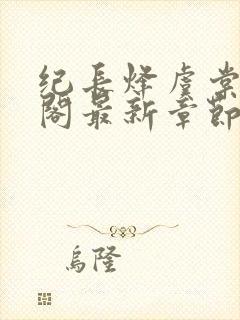 纪长烽虞棠
阁最新章节
乌隆